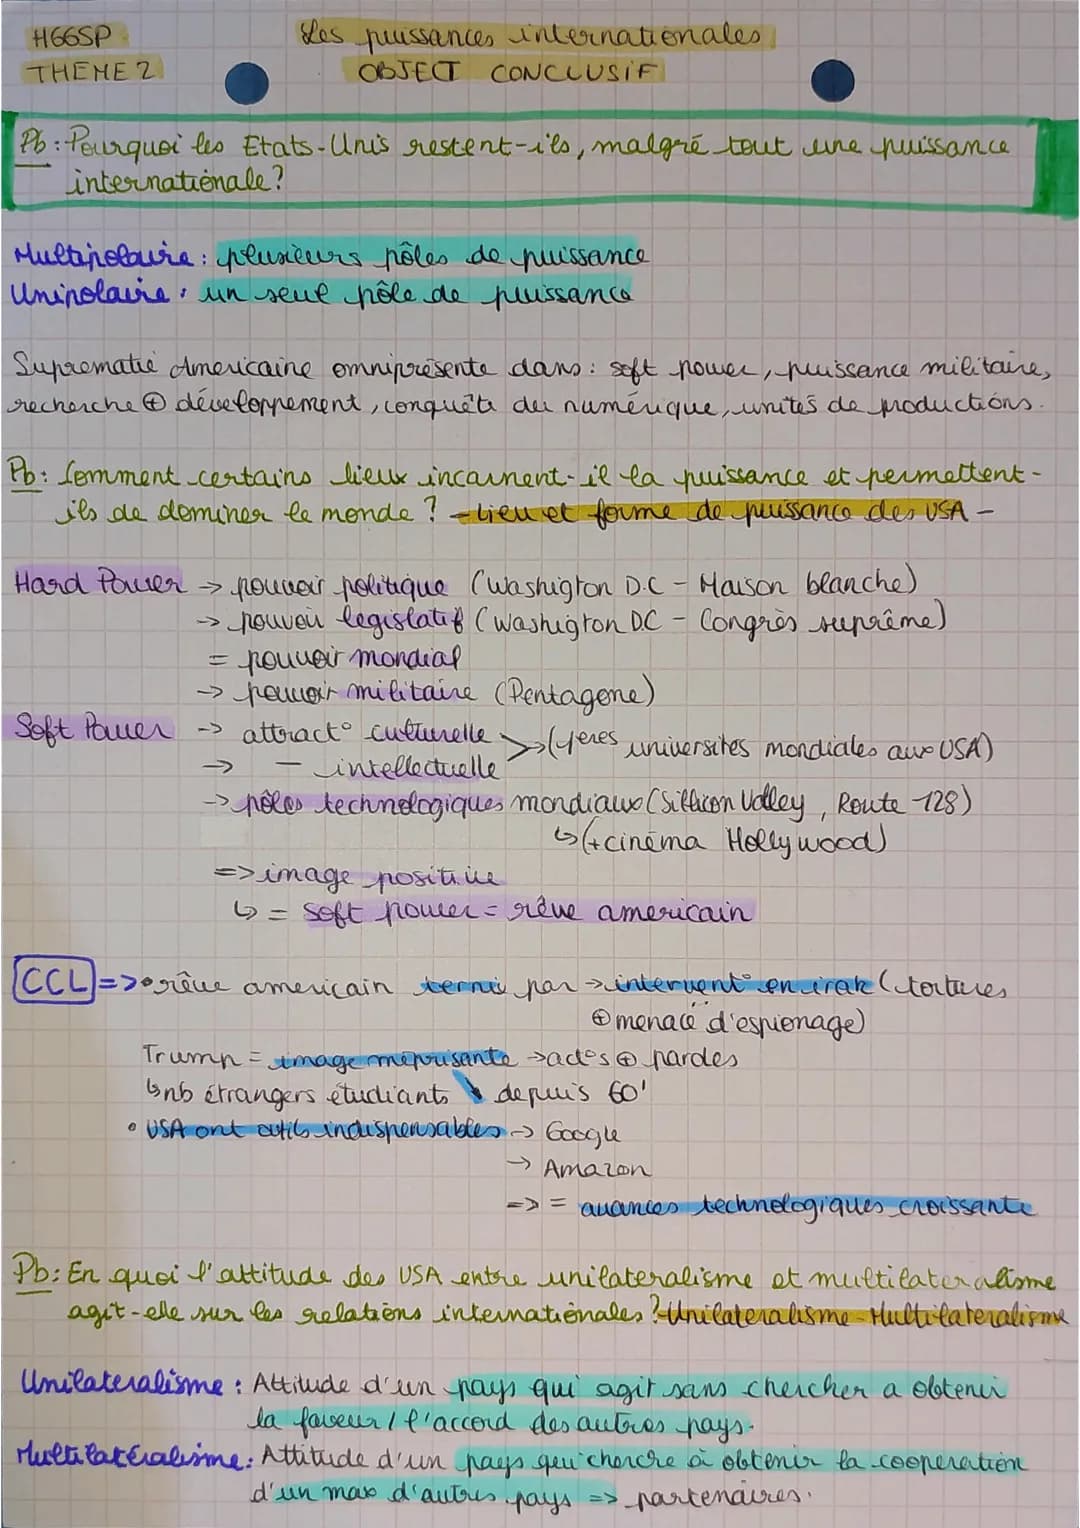 HGGSP
THEME 2
Les puissances internationales
OBJECT CONCLUSIF
Pb: Pourquoi les Etats-Unis restent-ils, malgré tout une puissance
internationale?
Multipolaire: plusieurs pôles de puissance
Unipolaire: un seul pôle de puissance
Suprematie Americaine omniprésente dans: soft power, puissance militaire,
recherche ⊕ développement, conquête du numérique, unités de productions.
Pb: Comment certains lieux incarnent-il la puissance et permettent-
ils de dominer le monde? - Lieu et forme de puissance des USA -
Hard Power → pouvoir politique (Washigton D.C - Maison blanche)
→ pouvoir legislatif (Washigton DC - Congrès suprême)
= pouvoir mondial
→ pouvoir militaire (Pentagone)
Soft Power → attract° culturelle >→ (1eres universités mondiales aux USA)
→ - intellectuelle
→ pôles technologiques mondiaux (Sillicon Valley, Route 128)
↳ (+ cinéma Hollywood)
=> image positive
↳ = soft power = rêve americain
CCL => • rêve americain terni par → intervent° en irak (tortures
⊕ menace d'espionage)
Trump = image méprisante → act°s ⊕ pardes
↳ nb étrangers étudiants ↘ depuis 60'
• USA ont outils indispensables → Google
→ Amazon
=> = avances technologiques croissante
Pb: En quoi l'attitude des USA entre unilateralisme et multilateralisme
agit-elle sur les relations internationales? - Unilateralisme - Multilateralisme
Unilateralisme: Attitude d'un pays qui agit sans chercher a obtenir
la faveur / l'accord des autres pays.
Multilatéralisme: Attitude d'un pays qui cherche à obtenir la cooperation
d'un max d'autres pays => partenaires.